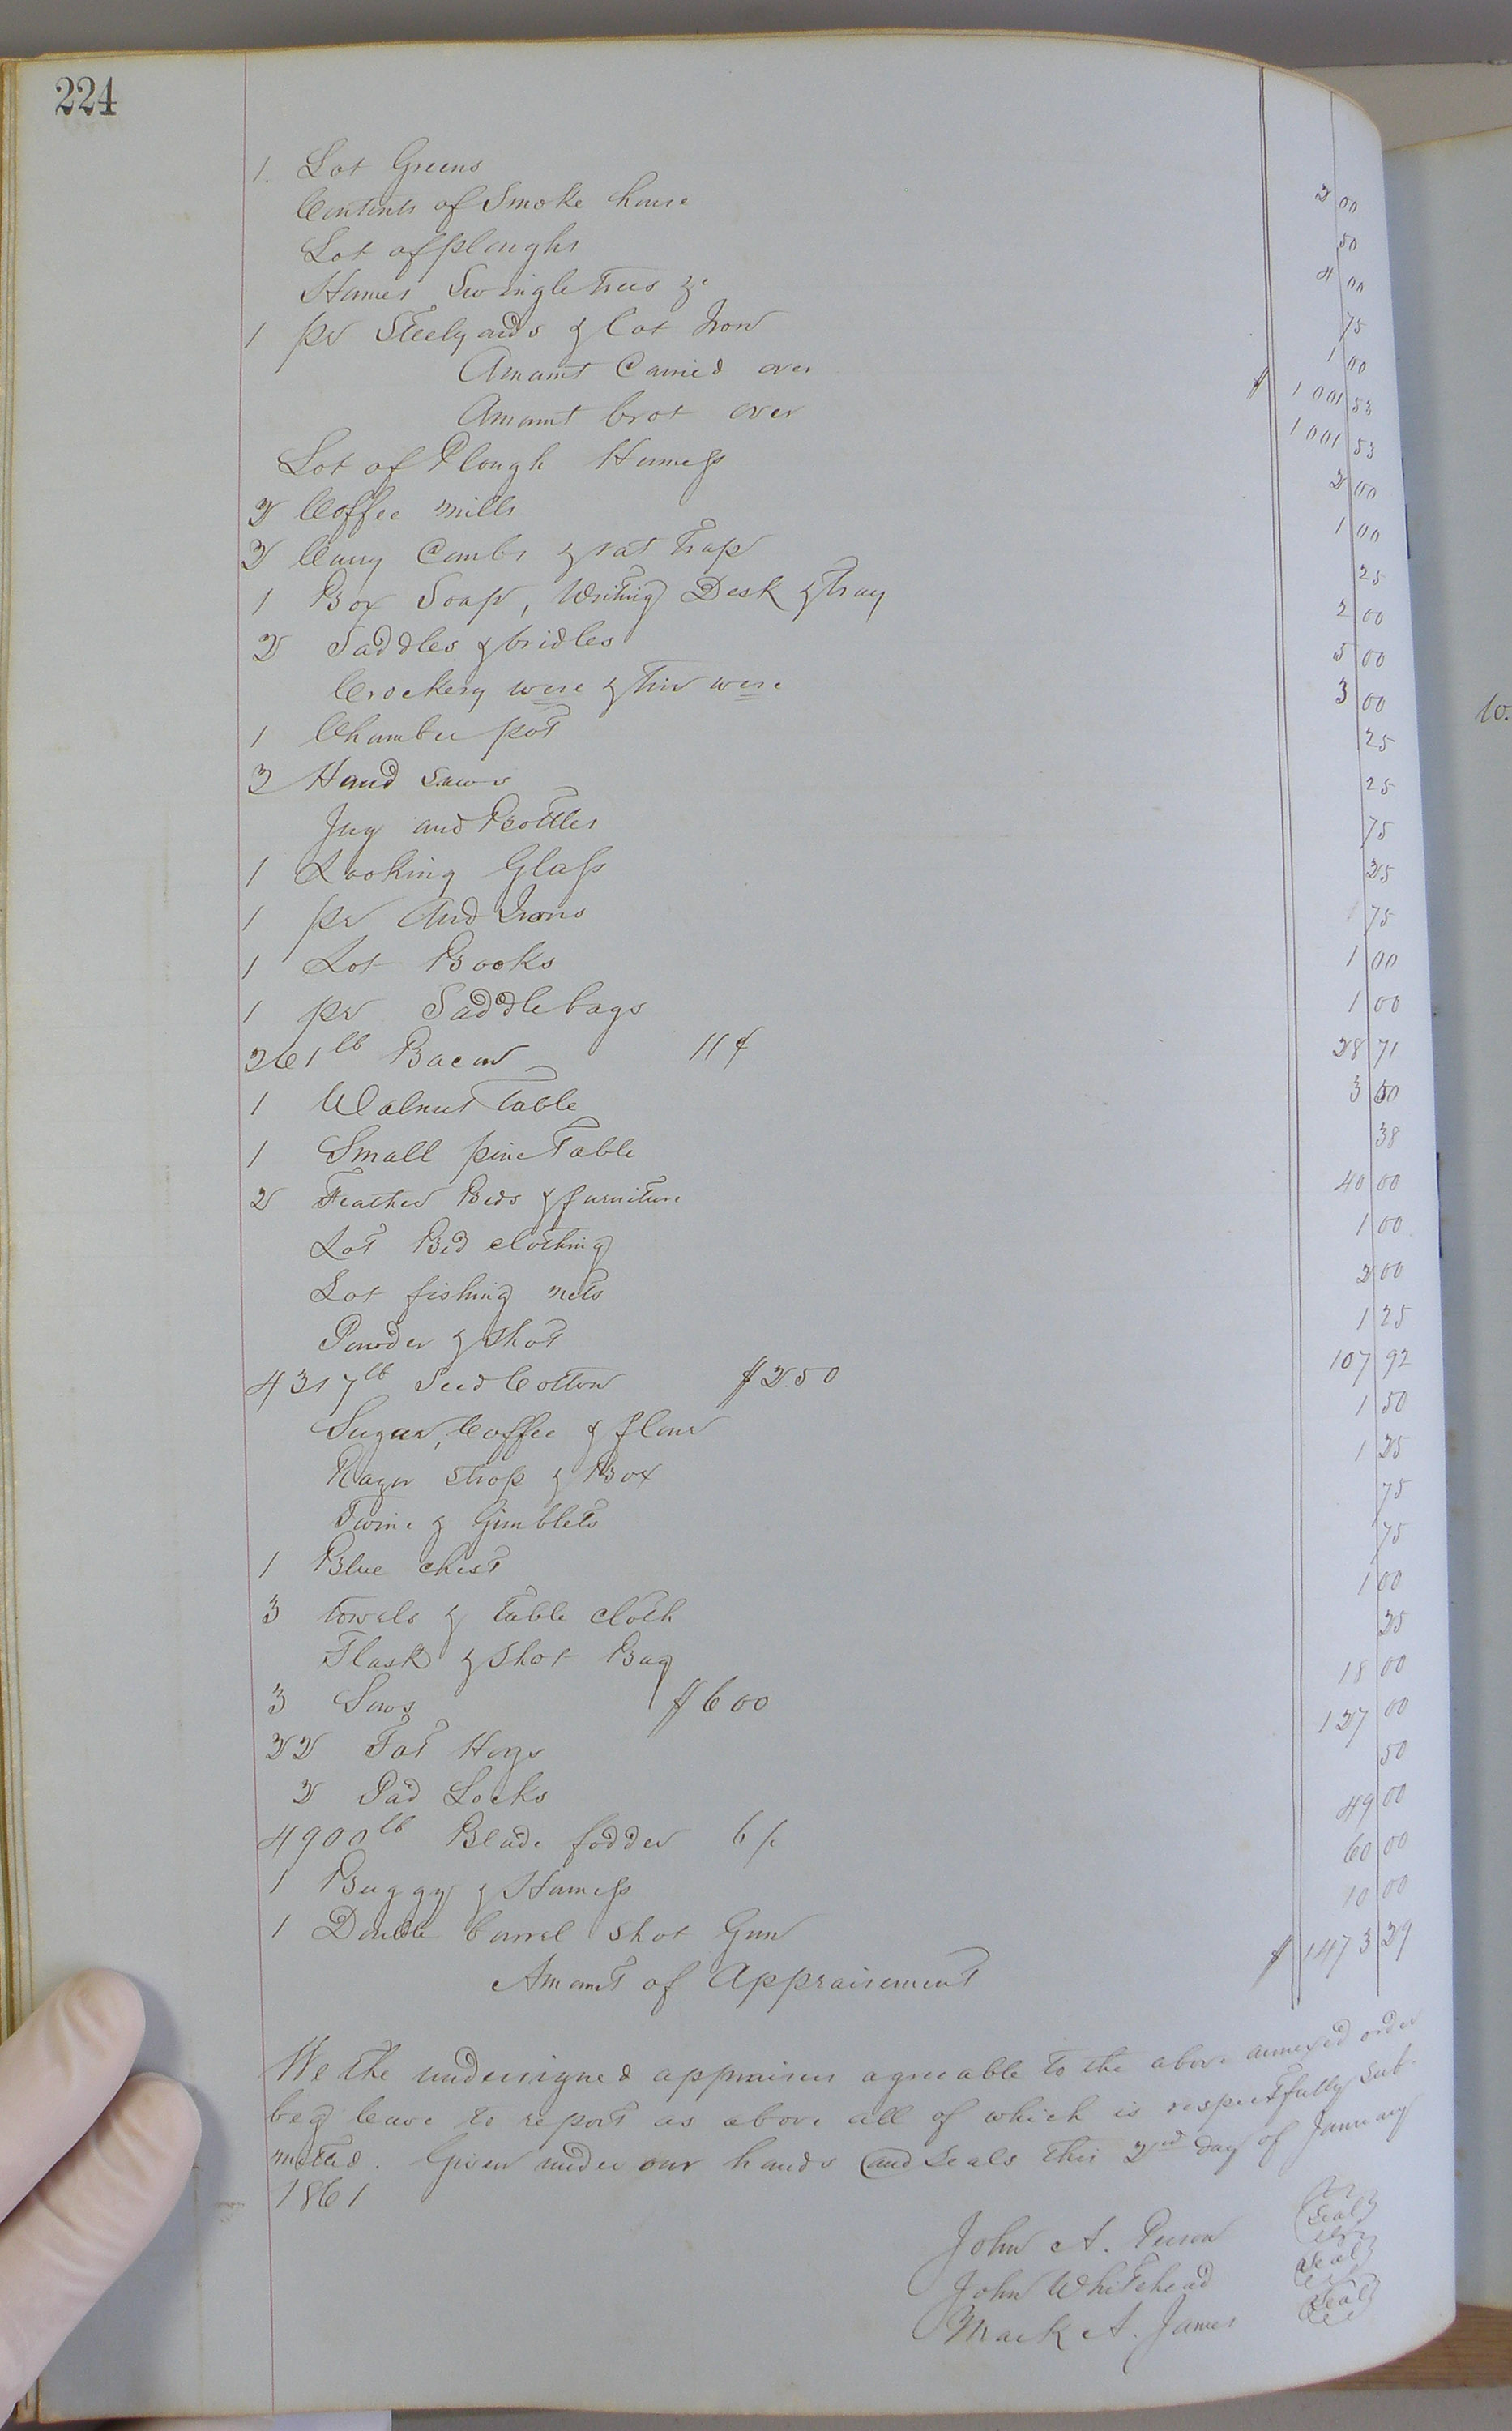 224
1. Lot Greens 2 00
Contents of Smoke house 50
Lot of ploughs 4 00
Hames Swingletrees &c 75
1 pr Steelyards & lot Iron 1 00
Amamt Carried over $ 1001 53
Amamt brot over 1001 53
Lot of Plough Harness 2 00
2 Coffee mills 1 00
2 Curry Combs & rat trap 25
1 Box Soap, Writing Desk & tray 2 00
2 Saddles & bridles 5 00
Crockery were & tin were 3 00
1 Chamber pot 25
3 Hand saws 25
Jug and Bottles 75
1 Looking Glass 25
1 pr And Irons 75
1 Lot Books 1 00
1 pr Saddlebags 1 00
261 lb Bacon 11¢ 28 71
1 Walnut Table 3 50
1 Small pine Table 38
2 Feather Beds & furniture 40 00
Lot Bed clothing 1 00
Lot fishing nets 2 00
Powder & Shot 1 25
4317 lb Seed Cotton $2.50 107 92
Sugar, Coffee & flour 1 50
Razor Strop & Box 1 25
Twine & Gimblets 75
1 Blue chest 75
3 towels & table cloth 1 00
Flask & Shot Bag 25
3 Sows $6 00 18 00
22 Fat Hogs 127 00
2 Pad Locks 50
4900 lb Blade fodder 49 00
1 Buggy & Harness 60 00
1 Double barrel shot Gun 10 00
Amamt of Appraisement $ 1473 29
We the undersigned appraisers agreeable to the above annexed order
beg leave to report as above all of which is respectfully sub-
mitted. Given under our hands and Seals this 2nd day of January
1861
John A. (Seal)
John Whitehead (Seal)
Mark A. James (Seal)
Co.